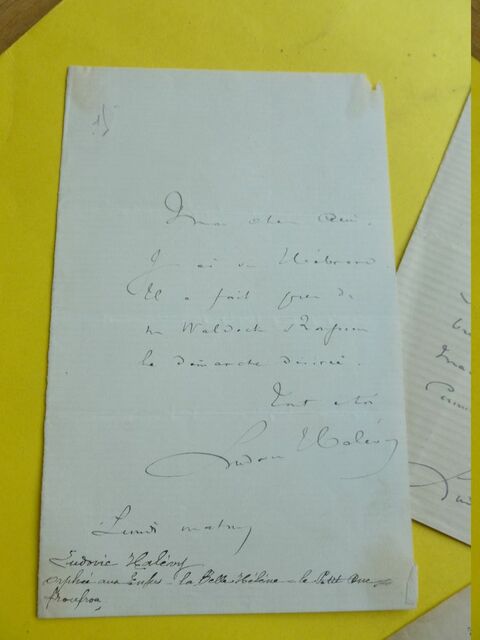 15
Mon cher ami.
J'ai vu Hébrard
Il a fait près de
Mr Waldeck Rousseau
la démarche désirée.
Tout à toi
Ludovic Halévy
Lundi matin
Ludovic Halévy
orphée aux Enfers - la Belle Hélène - le Petit Duc
froufrou